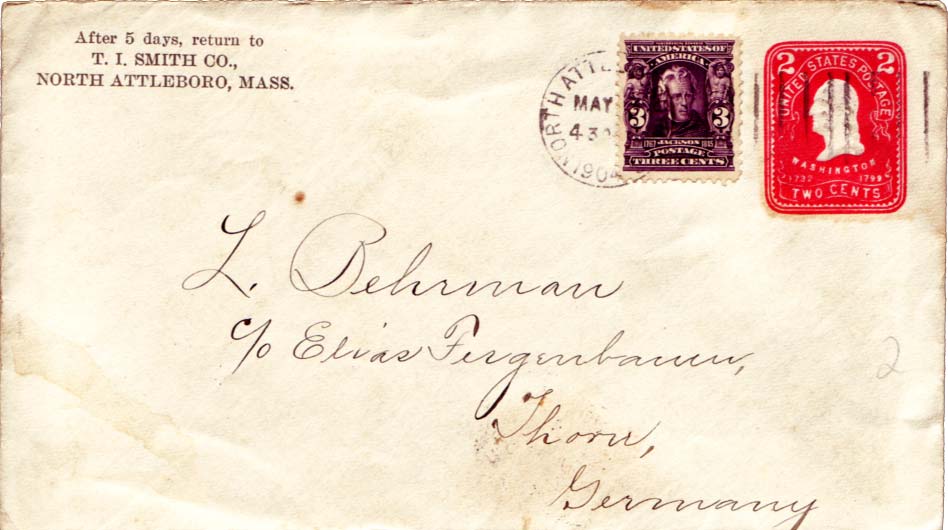 After 5 days, return to
T. I. SMITH CO.,
NORTH ATTLEBORO, MASS.
NORTH ATTLE
MAY
430
1904
UNITED STATES OF
AMERICA
3 3
1767 JACKSON 1845
POSTAGE
THREE CENTS
2 2
UNITED STATES POSTAGE
WASHINGTON
1732 1799
TWO CENTS
L. Behrman
c/o Elias Fergenbaum,
Thorn,
Germany
2